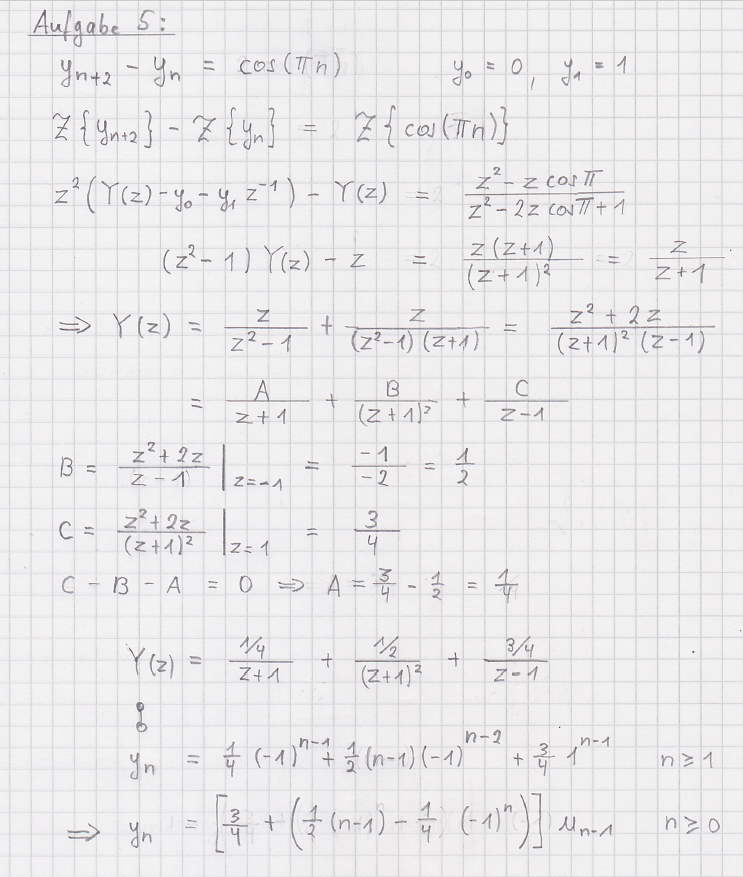 Aufgabe 5:
y_{n+2} - y_n = cos(πn)    y_0 = 0, y_1 = 1
Z{y_{n+2}} - Z{y_n} = Z{cos(πn)}
z^2 (Y(z) - y_0 - y_1 z^{-1}) - Y(z) = \frac{z^2 - z cos π}{z^2 - 2z cos π + 1}
(z^2 - 1) Y(z) - z = \frac{z(z+1)}{(z+1)^2} = \frac{z}{z+1}
⟹ Y(z) = \frac{z}{z^2 - 1} + \frac{z}{(z^2-1)(z+1)} = \frac{z^2 + 2z}{(z+1)^2 (z-1)}
= \frac{A}{z+1} + \frac{B}{(z+1)^2} + \frac{C}{z-1}
B = \frac{z^2+2z}{z-1} |_{z=-1} = \frac{-1}{-2} = \frac{1}{2}
C = \frac{z^2+2z}{(z+1)^2} |_{z=1} = \frac{3}{4}
C - B - A = 0 ⟹ A = \frac{3}{4} - \frac{1}{2} = \frac{1}{4}
Y(z) = \frac{1/4}{z+1} + \frac{1/2}{(z+1)^2} + \frac{3/4}{z-1}
y_n = \frac{1}{4} (-1)^{n-1} + \frac{1}{2} (n-1) (-1)^{n-2} + \frac{3}{4} 1^{n-1}    n ≥ 1
⟹ y_n = [\frac{3}{4} + (\frac{1}{2} (n-1) - \frac{1}{4} (-1)^n)] u_{n-1}    n ≥ 0